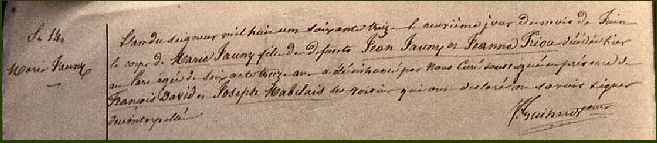 Se 14
Marie Jauny
L'an du seigneur mil huit cent soixante trois le neuvième jour du mois de Juin
le corps de Marie Jauny fille de défunts Jean Jauny et Jeanne Friou décédée hier
au âgée de soixante treize ans a été inhumé par nous Curé soussigné en présence de
François David et Joseph Mabilais ses voisins qui ont déclaré ne savoir signer
de ce interpellé